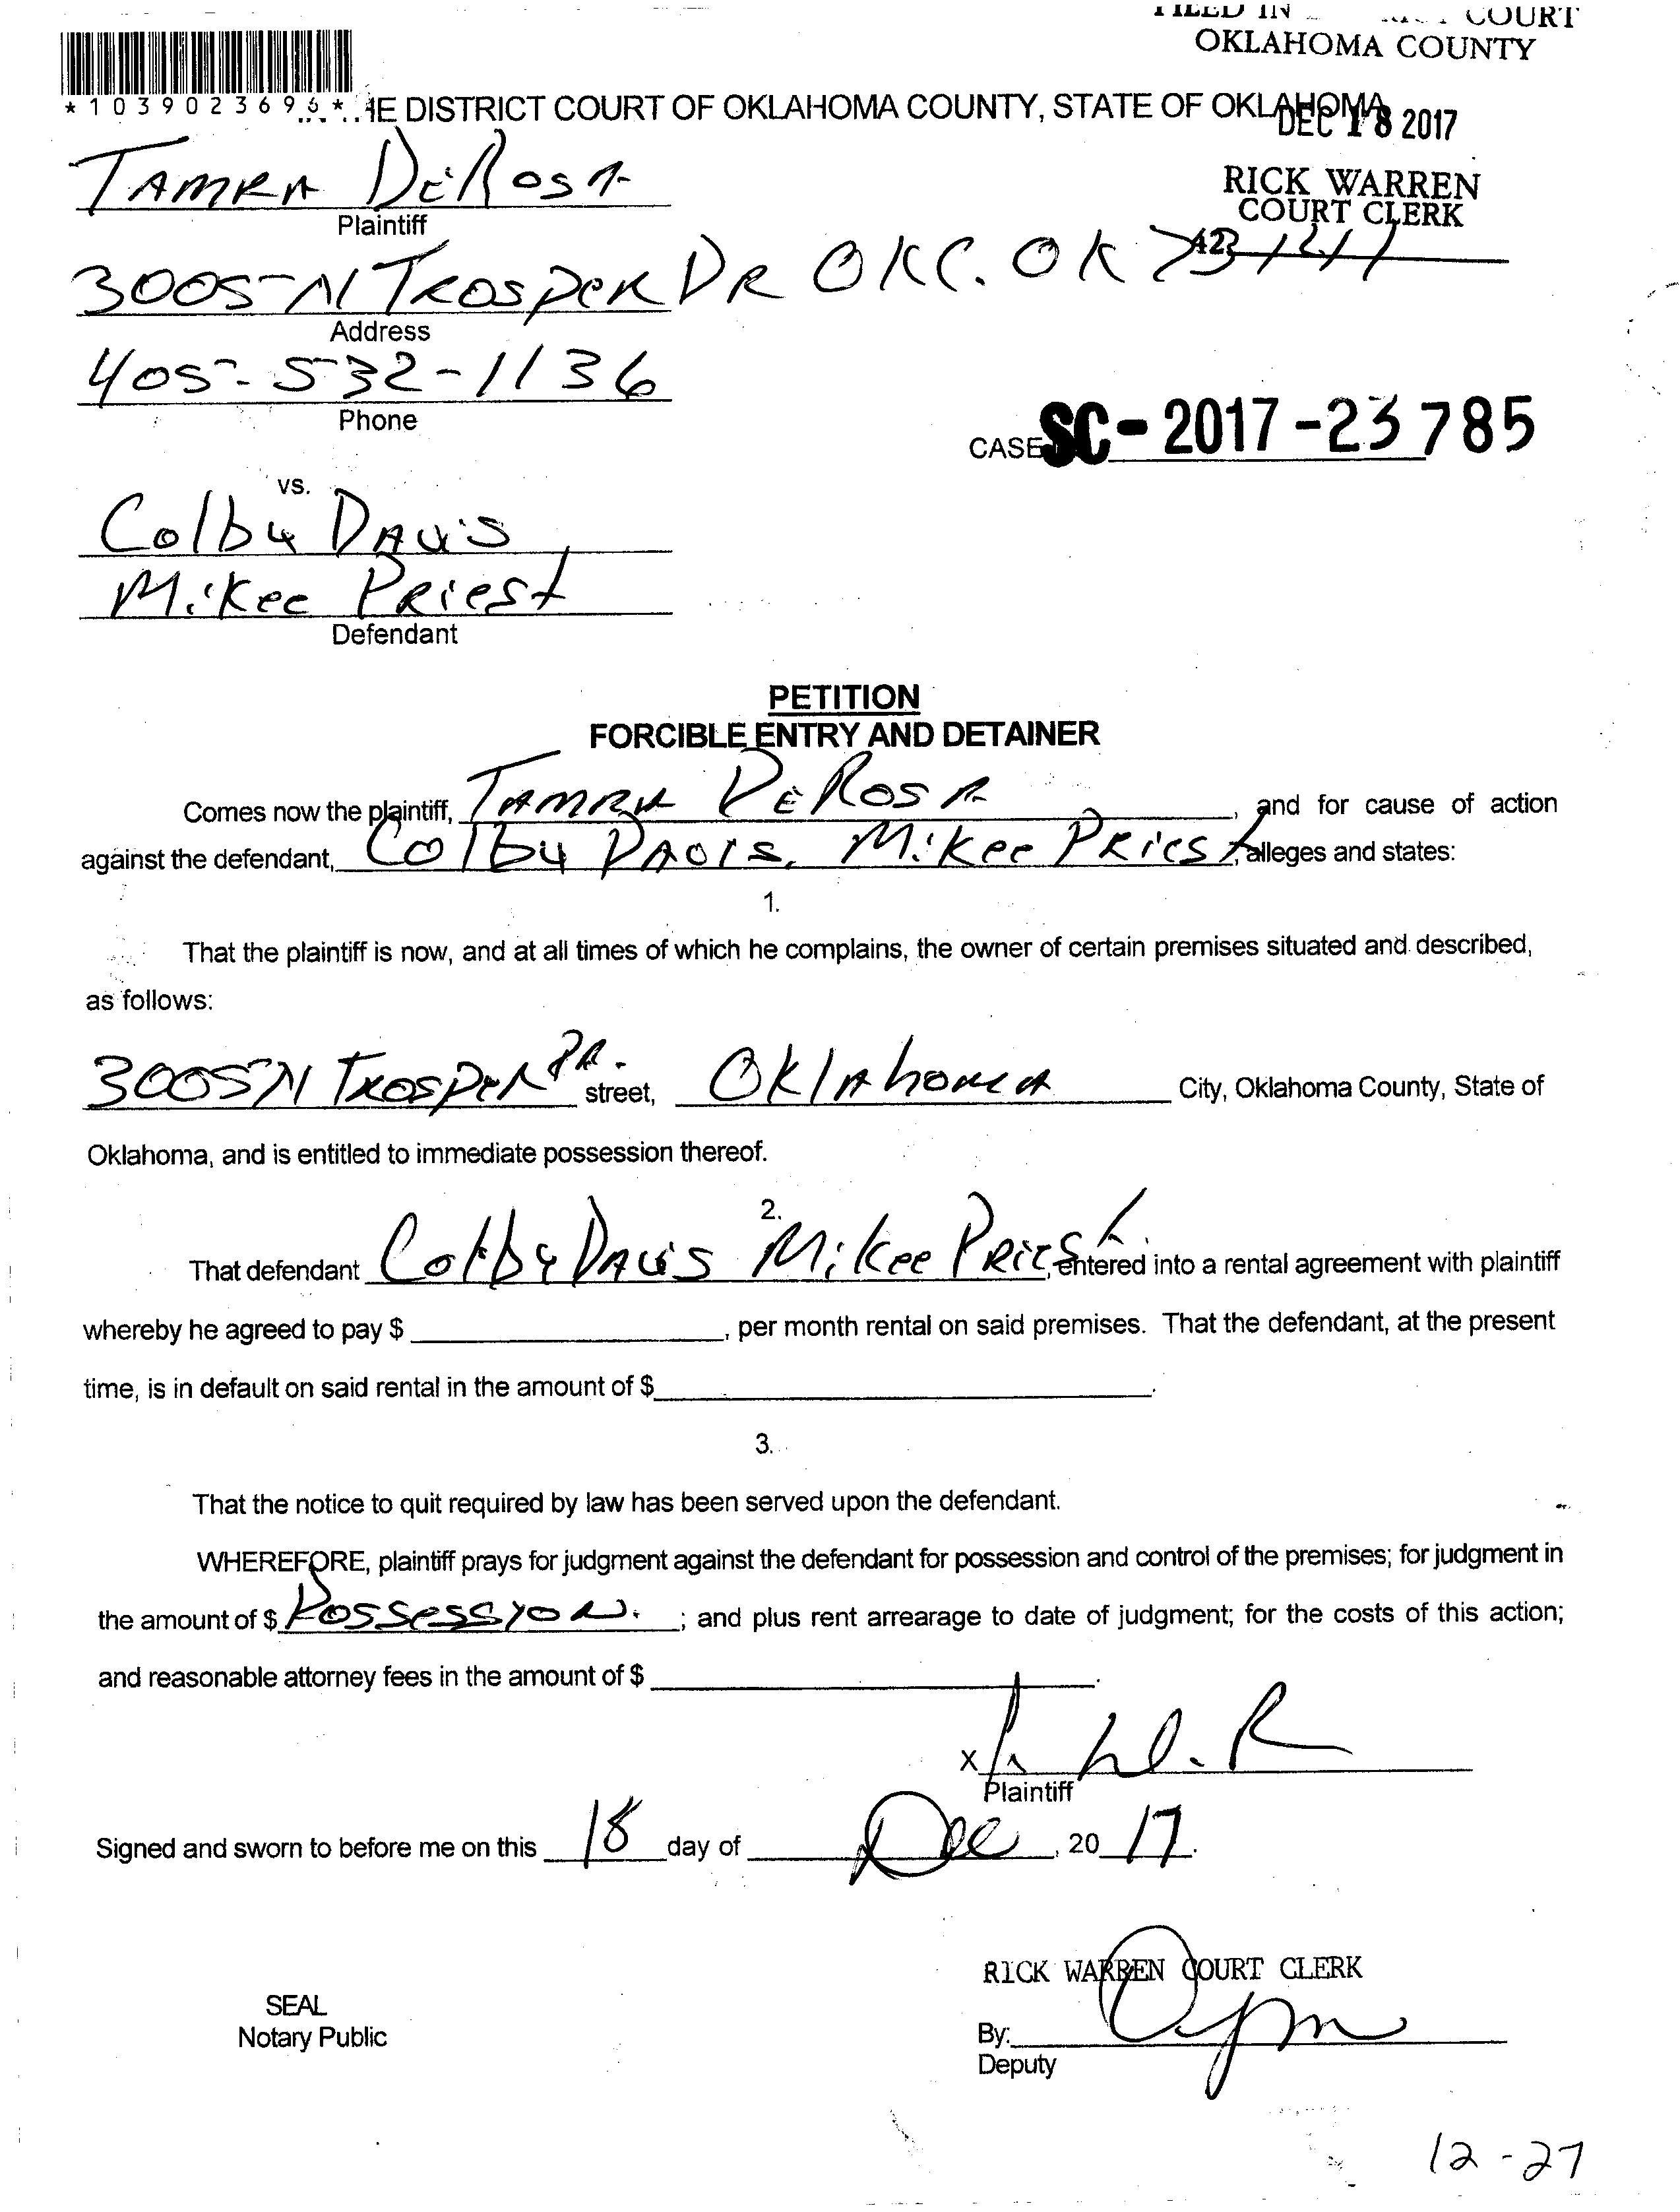 FILED IN COURT
OKLAHOMA COUNTY
*1039023696* HE DISTRICT COURT OF OKLAHOMA COUNTY, STATE OF OKLAHOMA
DEC 18 2017
TAMRA DeRosA
Plaintiff
RICK WARREN
COURT CLERK
42
3005 N TROSPER DR OKC. OK 73141
Address
405-532-1136
Phone
CASE SC-2017-23785
vs.
Colby DAvis
Mikee PRiest
Defendant
PETITION
FORCIBLE ENTRY AND DETAINER
Comes now the plaintiff, TAMRA DeRosA, and for cause of action
against the defendant, Colby DAvis, Mikee PRiest, alleges and states:
1.
That the plaintiff is now, and at all times of which he complains, the owner of certain premises situated and described,
as follows:
3005 N TROSPER DR. street, OklAhomA City, Oklahoma County, State of
Oklahoma, and is entitled to immediate possession thereof.
2.
That defendant Colby DAvis Mikee PRiest, entered into a rental agreement with plaintiff
whereby he agreed to pay $ , per month rental on said premises. That the defendant, at the present
time, is in default on said rental in the amount of $ .
3.
That the notice to quit required by law has been served upon the defendant.
WHEREFORE, plaintiff prays for judgment against the defendant for possession and control of the premises; for judgment in
the amount of $ Possession. ; and plus rent arrearage to date of judgment; for the costs of this action;
and reasonable attorney fees in the amount of $ .
X
Plaintiff
Signed and sworn to before me on this 18 day of Dec, 20 17.
RICK WARREN COURT CLERK
SEAL
Notary Public
By:
Deputy
12-27